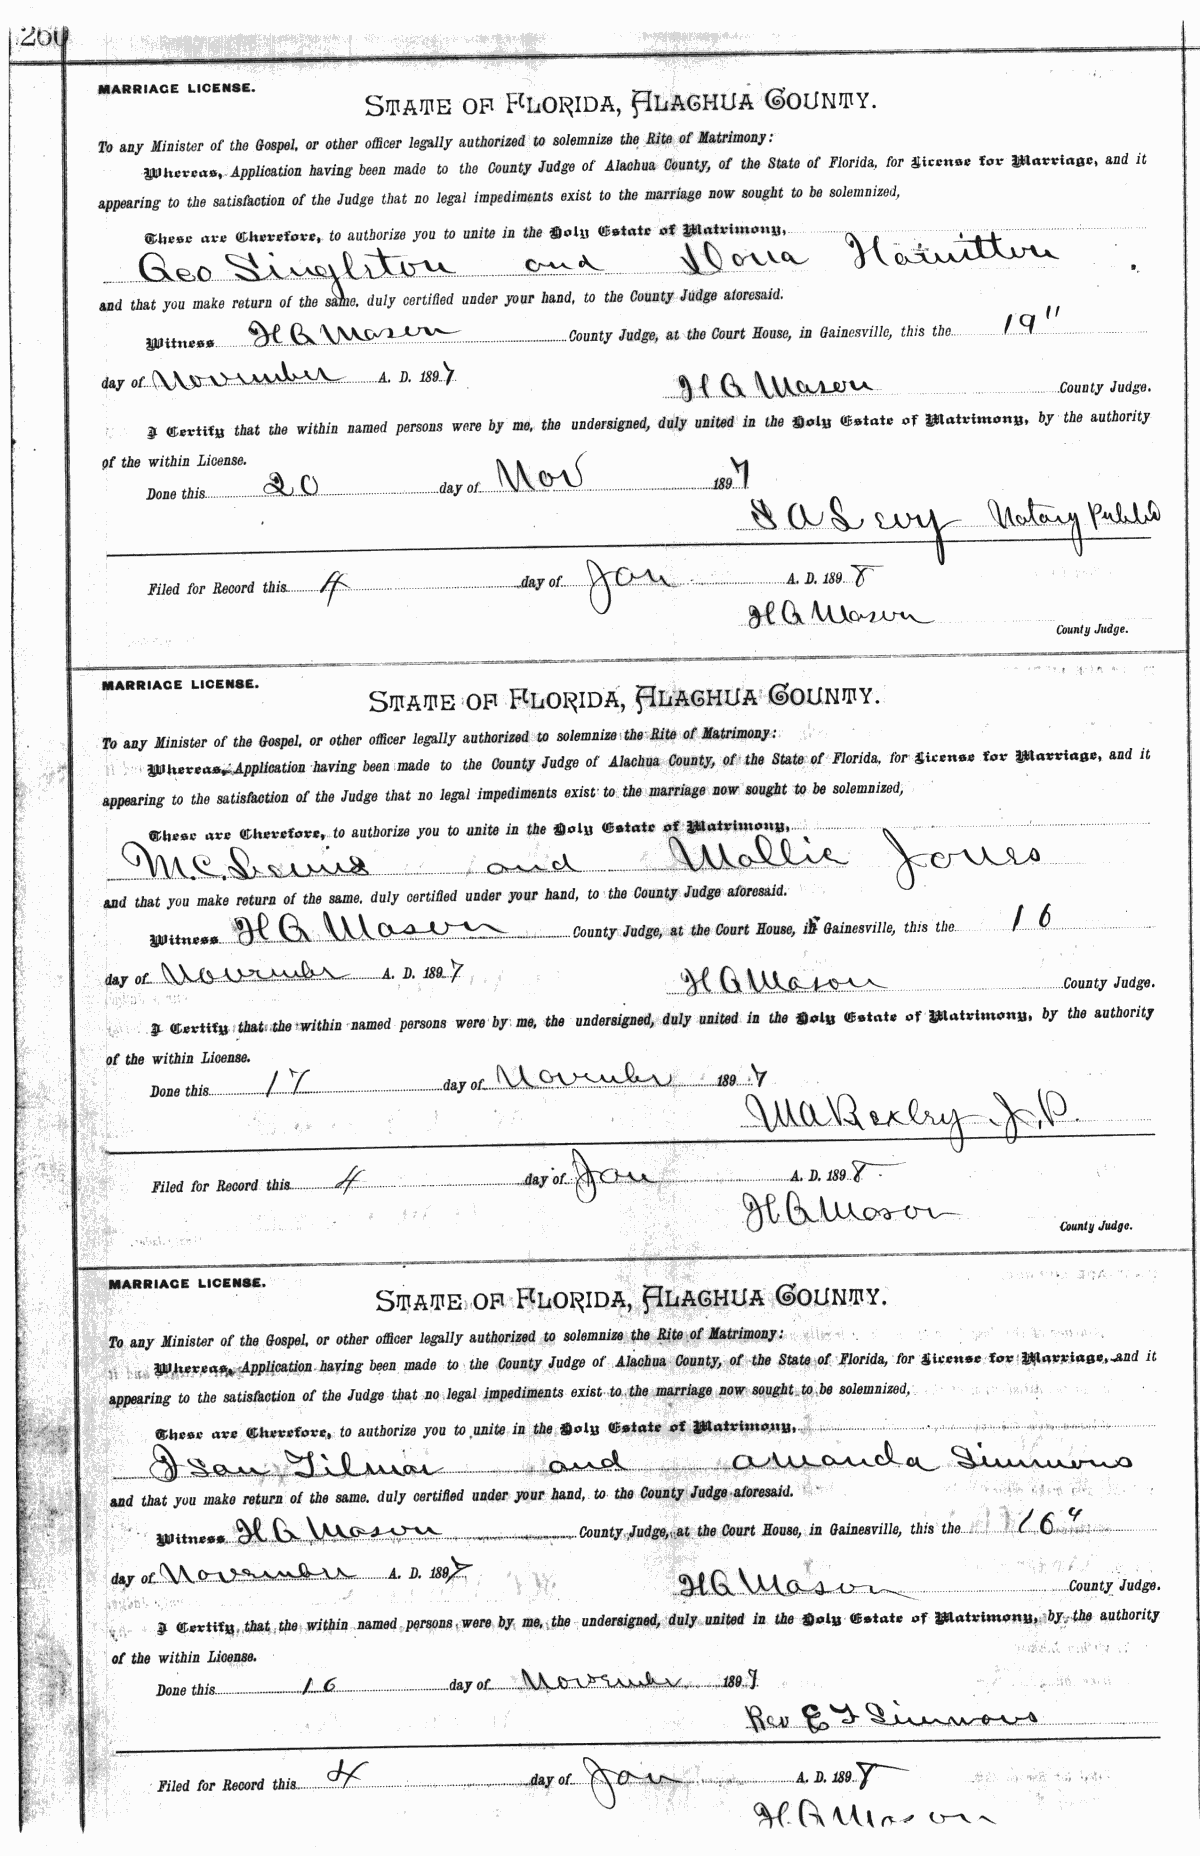 260
MARRIAGE LICENSE.
STATE OF FLORIDA, ALACHUA COUNTY.
To any Minister of the Gospel, or other officer legally authorized to solemnize the Rite of Matrimony:
Whereas, Application having been made to the County Judge of Alachua County, of the State of Florida, for License for Marriage, and it
appearing to the satisfaction of the Judge that no legal impediments exist to the marriage now sought to be solemnized,
These are Therefore, to authorize you to unite in the Holy Estate of Matrimony,
Geo Singlston and Dona Hamitton
and that you make return of the same, duly certified under your hand, to the County Judge aforesaid.
Witness H G Mason County Judge, at the Court House, in Gainesville, this the 19"
day of November A. D. 1897 H G Mason County Judge.
I Certify that the within named persons were by me, the undersigned, duly united in the Holy Estate of Matrimony, by the authority
of the within License.
Done this 20 day of Nov 1897
S A Levy Notary Public
Filed for Record this 4 day of Jan A. D. 1898
H G Mason
County Judge.
MARRIAGE LICENSE.
STATE OF FLORIDA, ALACHUA COUNTY.
To any Minister of the Gospel, or other officer legally authorized to solemnize the Rite of Matrimony:
Whereas, Application having been made to the County Judge of Alachua County, of the State of Florida, for License for Marriage, and it
appearing to the satisfaction of the Judge that no legal impediments exist to the marriage now sought to be solemnized,
These are Therefore, to authorize you to unite in the Holy Estate of Matrimony,
M.C. Lewis and Mollie Jones
and that you make return of the same, duly certified under your hand, to the County Judge aforesaid.
Witness H G Mason County Judge, at the Court House, in Gainesville, this the 16
day of November A. D. 1897 H G Mason County Judge.
I Certify that the within named persons were by me, the undersigned, duly united in the Holy Estate of Matrimony, by the authority
of the within License.
Done this 17 day of November 1897
J.P.
Filed for Record this 4 day of Jan A. D. 1898
H G Mason
County Judge.
MARRIAGE LICENSE.
STATE OF FLORIDA, ALACHUA COUNTY.
To any Minister of the Gospel, or other officer legally authorized to solemnize the Rite of Matrimony:
Whereas, Application having been made to the County Judge of Alachua County, of the State of Florida, for License for Marriage, and it
appearing to the satisfaction of the Judge that no legal impediments exist to the marriage now sought to be solemnized,
These are Therefore, to authorize you to unite in the Holy Estate of Matrimony,
and Amanda Simmons
and that you make return of the same, duly certified under your hand, to the County Judge aforesaid.
Witness H G Mason County Judge, at the Court House, in Gainesville, this the 16"
day of November A. D. 1897 H G Mason County Judge.
I Certify that the within named persons were by me, the undersigned, duly united in the Holy Estate of Matrimony, by the authority
of the within License.
Done this 16 day of November 1897
Rev E F Simmons
Filed for Record this 4 day of Jan A. D. 1898
H. G Mason